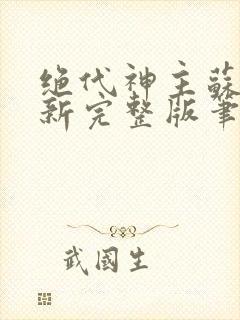 绝代神主蘇
新完整版筆
武國生